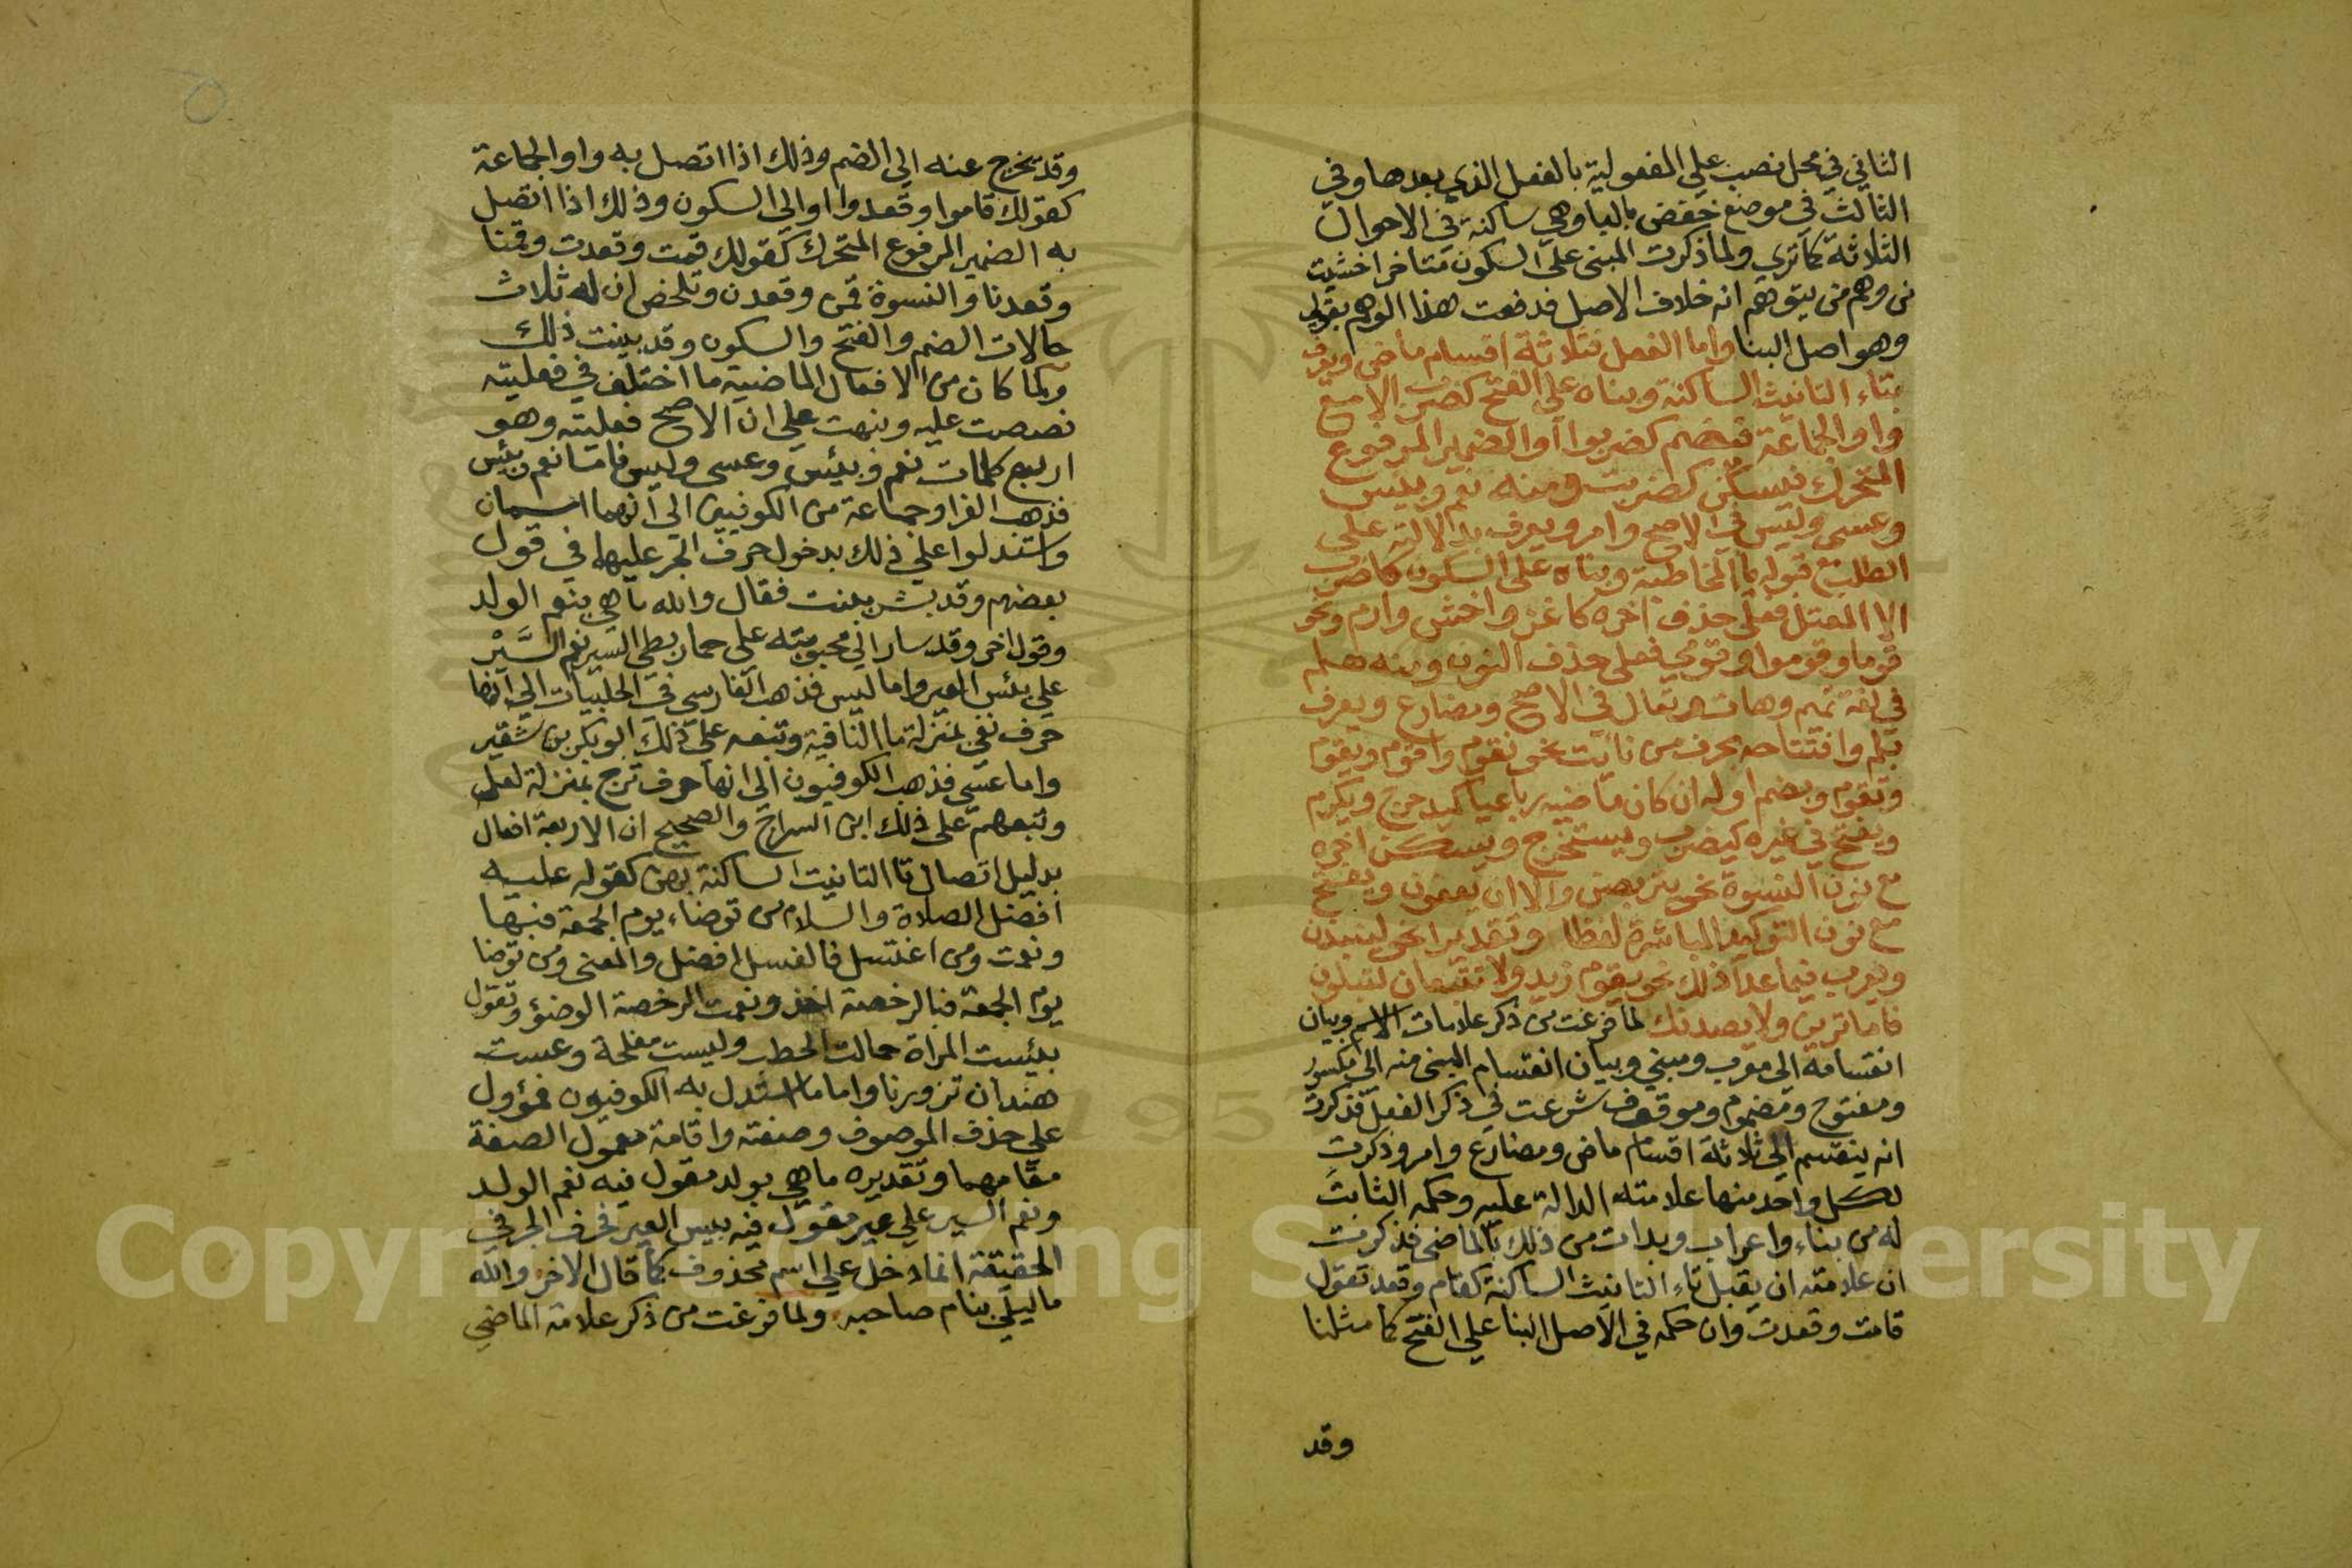 الثاني في محل نصب علي المفعولية بالفعل الذي بعدها وفي
الثالث في موضع خفض بالبا وهي ساكنة في الاحوال
الثلاثة كما تري ولما ذكرت المبنى على السكون متاخرا خشيت
من وهم من يتوهم انه خلاف الاصل فدفعت هذا الوهم بقولي
وهو اصل البنا واما الفعل فثلاثة اقسام ماض ويعرف
بتاء التانيث الساكنة وبناه على الفتح كضرب الا مع
واو الجماعة فيضم كضربوا او الضمير المرفوع
المتحرك فيسكن كضربت ومنه نعم وبئس
وعسى وليس في الاصح وامر ويعرف بدلالته على
الطلب مع قبوله يا المخاطبة وبناه على السكون كاضرب
الا المعتل فعلى حذف اخره كاغز واخش وارم ونحو
قوما وقوموا وقومي فعلى حذف النون ومنه هلم
في لغة تميم وهات وتعال في الاصح ومضارع ويعرف
بلم وافتتاحه بحرف من نايت نحو نقوم واقوم ويقوم
وتقوم وبضم اوله ان كان ماضيه رباعيا كيدحرج ويكرم
ويفتح في غيره كيضرب ويستخرج ويسكن اخره
مع نون النسوة نحو يتربصن والا ان يعفون ويفتح
مع نون التوكيد المباشرة لفظا وتقديرا نحو لينبذن
ويعرب فيما عدا ذلك نحو يقوم زيد ولا تتبعان لتبلون
فاما ترين ولا يصدنك لما فرغت من ذكر علامات الاسم وبيان
انقسامه الى معرب ومبني وبيان انقسام المبنى منه الى مكسور
ومفتوح ومضموم وموقوف شرعت في ذكر الفعل فذكرت
انه ينقسم الي ثلاثة اقسام ماض ومضارع وامر وذكرت
لكل واحد منها علامته الدالة عليه وحكمه الثابت
له من بناء واعراب وبدات من ذلك بالماضي فذكرت
ان علامته ان يقبل تاء التانيث الساكنة كقام وقعد تقول
قامت وقعدت وان حكمه في الاصل البنا علي الفتح كما مثلنا
وقد
وقد يخرج عنه الي الضم وذلك اذا اتصل به واو الجماعة
كقولك قاموا وقعدوا او الي السكون وذلك اذا اتصل
به الضمير المرفوع المتحرك كقولك قمت وقعدت وقمنا
وقعدنا والنسوة قمن وقعدن وتلخص ان له ثلاث
حالات الضم والفتح والسكون وقد بينت ذلك
ولما كان من الافعال الماضية ما اختلف في فعليته
نصصت عليه ونبهت علي ان الاصح فعليته وهو
اربع كلمات نعم وبئس وعسى وليس فاما نعم وبئس
فذهب الفرا وجماعة من الكوفيين الي انهما اسمان
واستدلوا علي ذلك بدخول حرف الجر عليهما في قول
بعضهم وقد بشر ببنت فقال والله ما هي بنعم الولد
وقول اخر وقد سار الي محبوبته على حمار بطي السير نعم السَّيْر
علي بئس العير واما ليس فذهب الفارسي في الحلبيات الي انها
حرف نفي بمنزلة ما النافية وتبعه على ذلك ابو بكر بن شقير
واما عسى فذهب الكوفيون الى انها حرف ترج بمنزلة لعل
وتبعهم على ذلك ابن السراج والصحيح ان الاربعة افعال
بدليل اتصال تا التانيث الساكنة بهن كقوله عليه
افضل الصلاة والسلام من توضاء يوم الجمعة فبها
ونعمت ومن اغتسل فالغسل افضل والمعنى ومن توضا
يوم الجمعة فبالرخصة اخذ ونعمت الرخصة الوضؤ وتقول
بئست المراة حمالت الحطب وليست مفلحة وعست
هند ان تزورنا واما ما استدل به الكوفيون فمؤول
علي حذف الموصوف وصفته واقامة معمول الصفة
مقامهما وتقديره ما هي بولد مقول فيه نعم الولد
ونعم السير علي عير مقول فيه بيس العير فحرف الجر في
الحقيقة انما دخل علي اسم محذوف كما قال الاخر والله
ما ليلي بنام صاحبه ولما فرغت من ذكر علامة الماضي